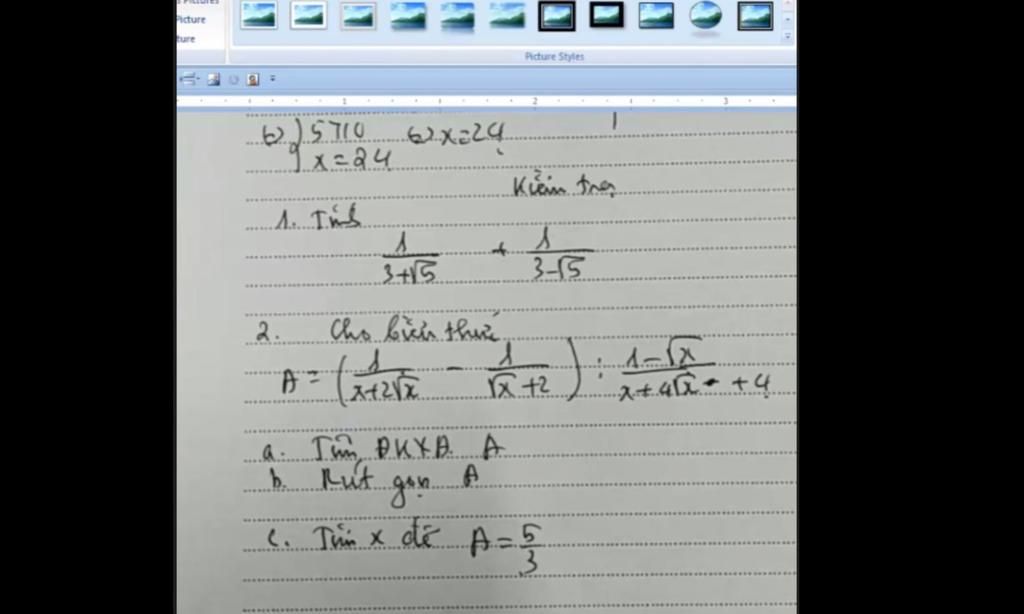 Pictures
Picture
ture
Picture Styles
1 2 3
5710 ⇔ x=24
x=24
Kiểm tra
1. Tính
1/(3+√5) + 1/(3-√5)
2. Cho biểu thức
A = (1/(x+2√x) - 1/(√x+2)) : (1-√x)/(x+4√x +4)
a. Tìm ĐKXĐ A
b. Rút gọn A
c. Tìm x để A = 5/3